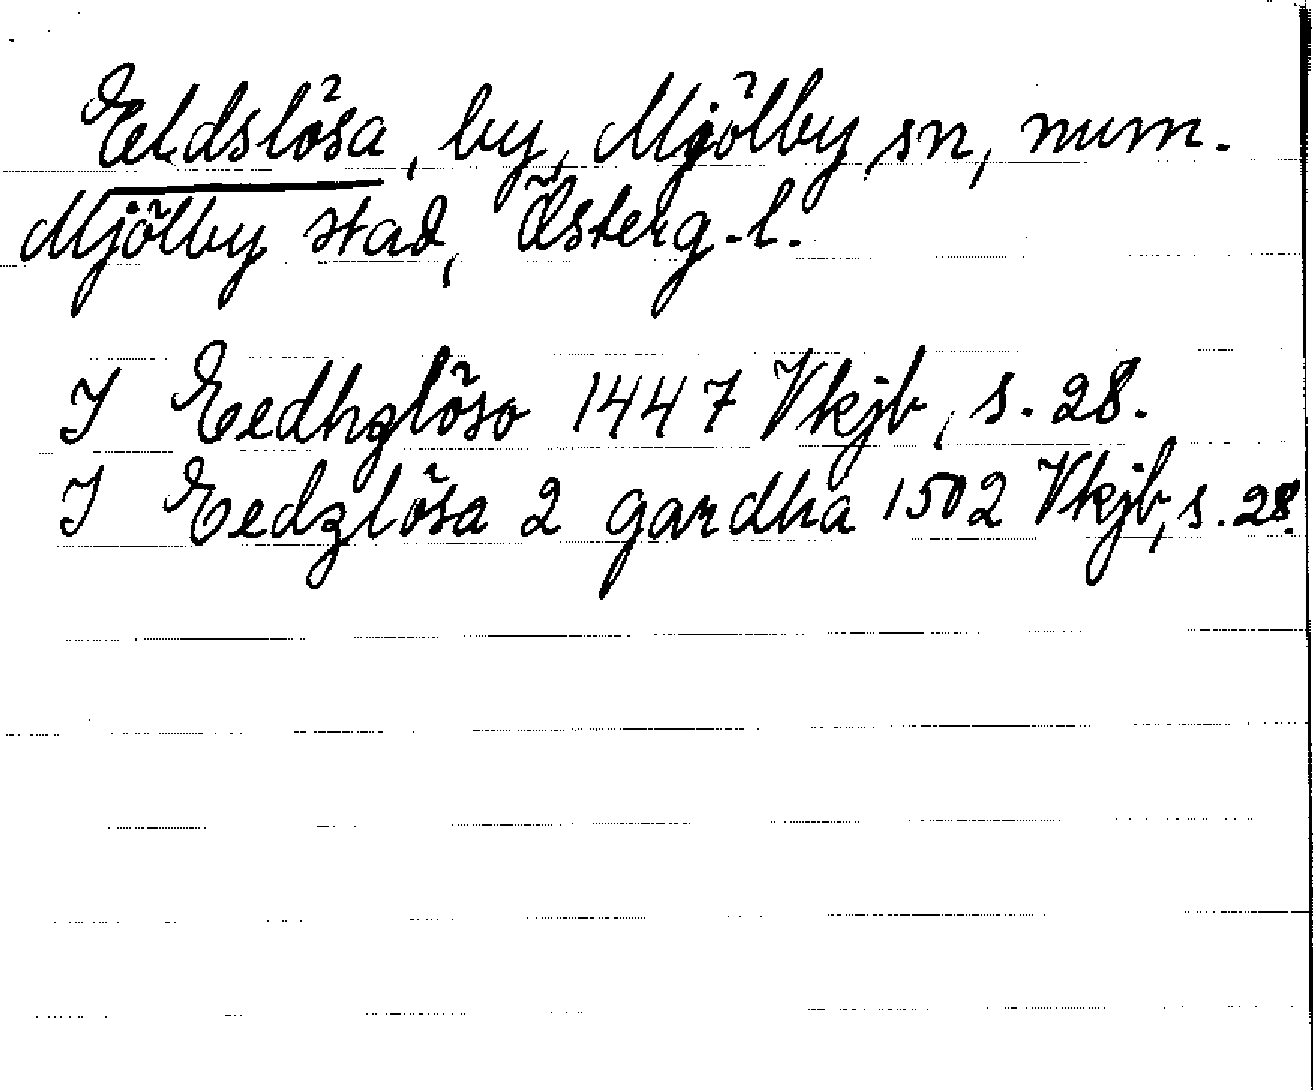 Eldslösa, by, Mjölby sn, num.
Mjölby stad, Österg.l.
I Eedhzlöso 1447 Vkjb, s. 28.
I Eedzlösa 2 gardha 1502 Vkjb, s. 28.